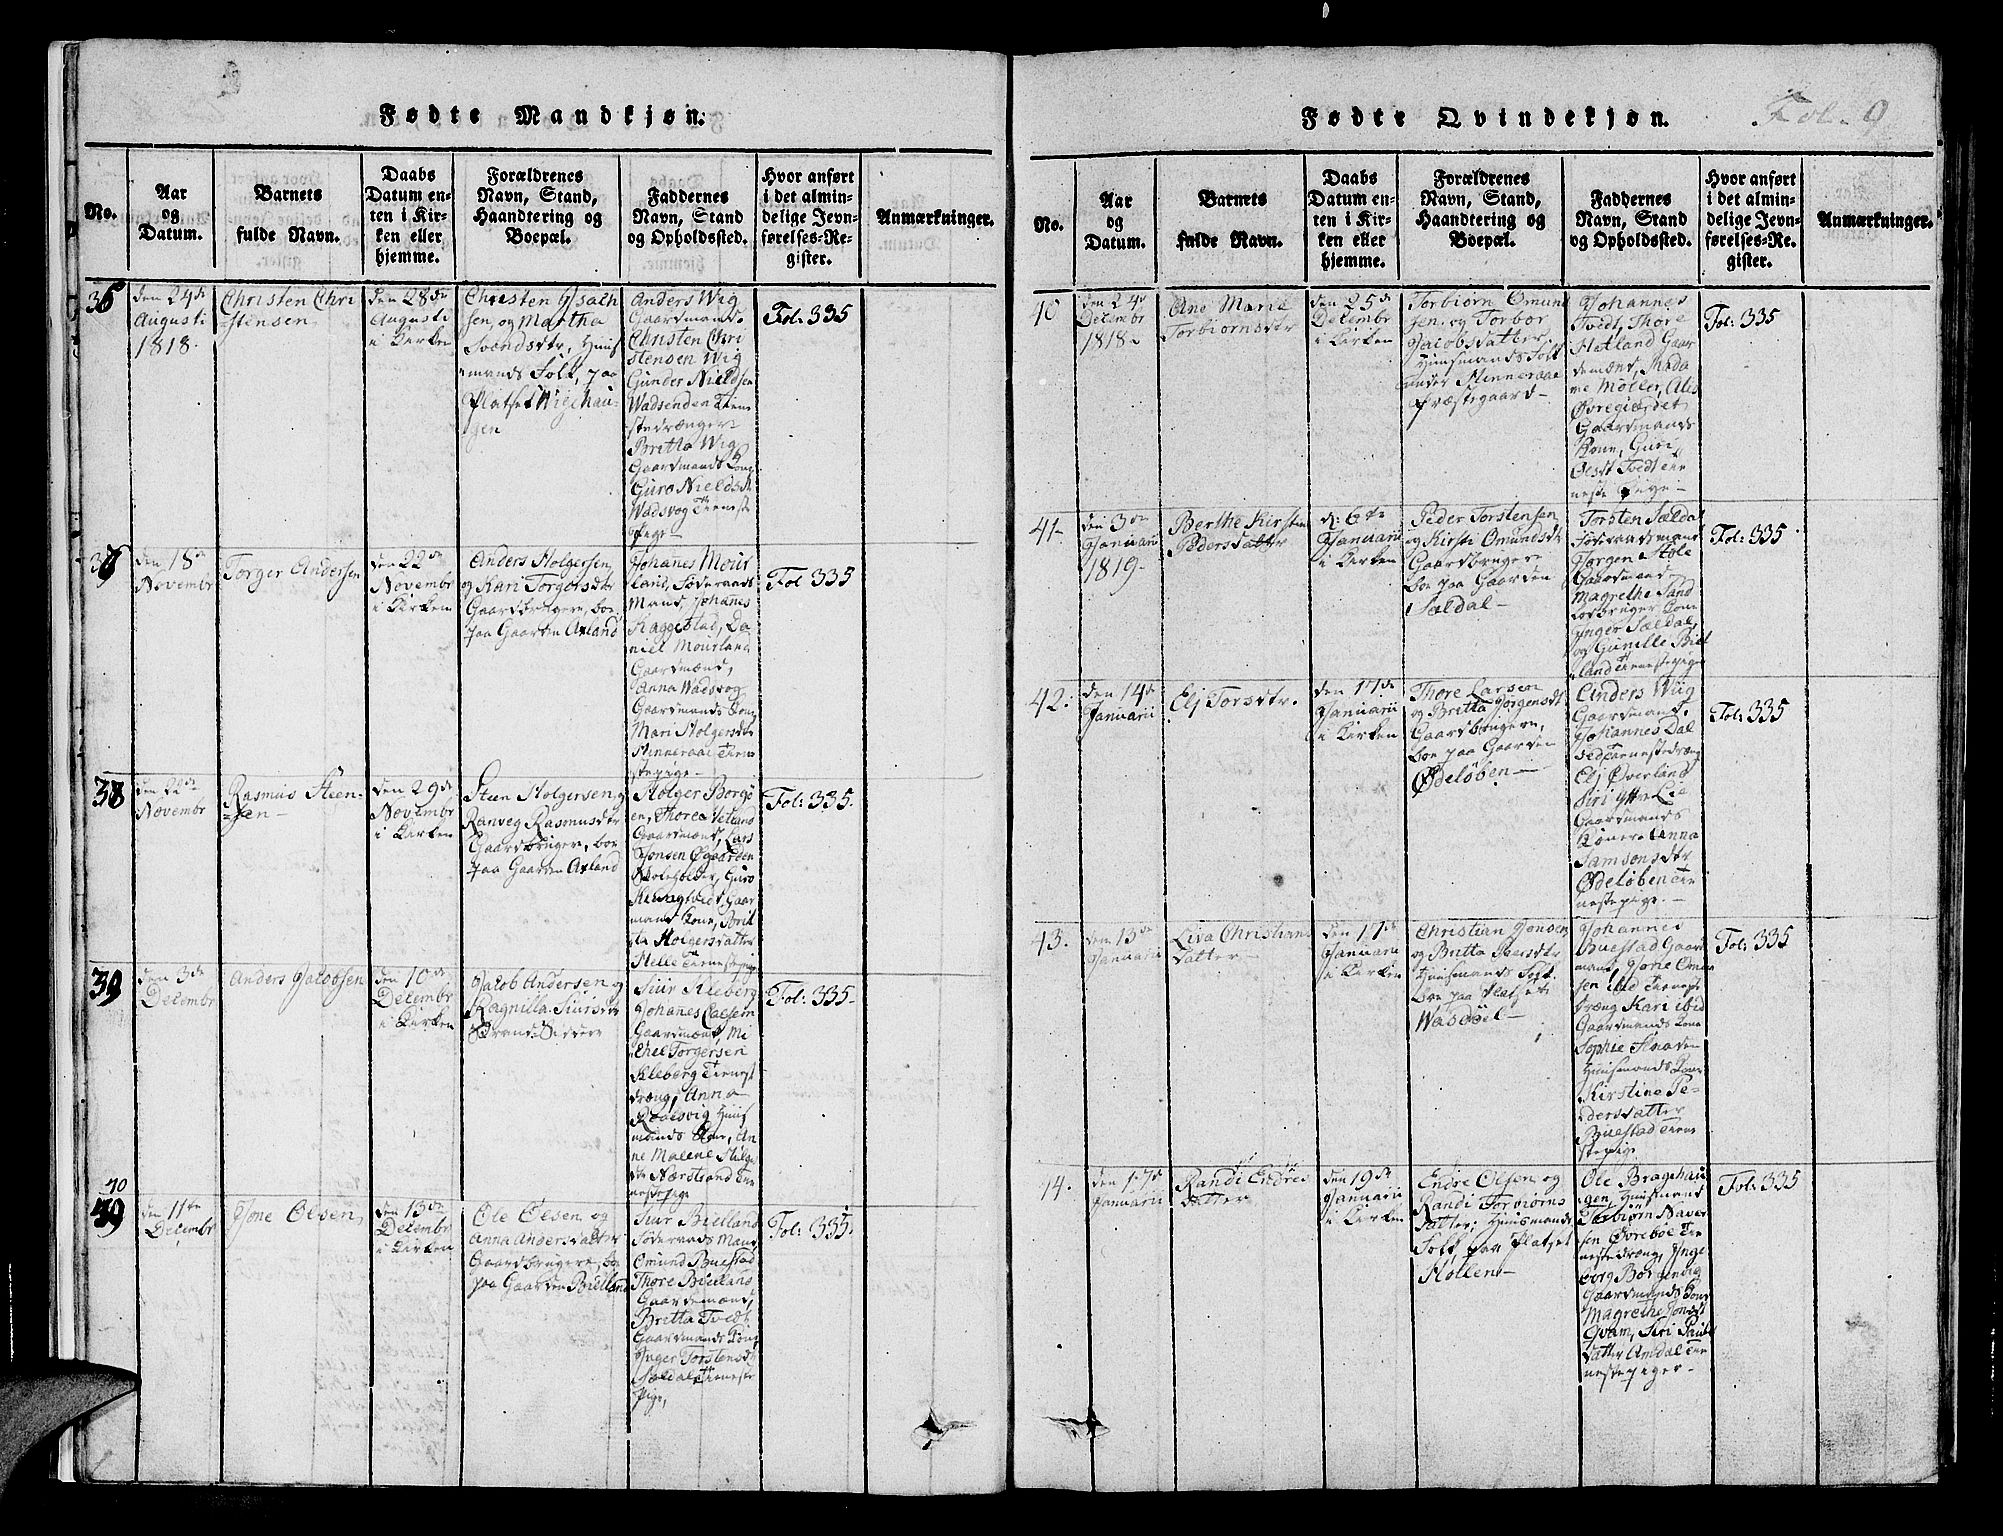 Fødte Mandkjøn.
No.
Aar
og
Datum.
Barnets
fulde Navn.
Daabs
Datum en-
ten i Kir-
ken eller
hjemme.
Forældrenes
Navn, Stand,
Haandtering og
Boepæl.
Faddernes
Navn, Stand
og Opholdssted.
Hvor anført
i det almin-
delige Jevn-
førelses-Re-
gister.
Anmærkninger.
36
den 24de
Augusti
1818.
Christen Chri
stensen
den 28de
Augusti
i Kirken
Christen Isach
sen, og Martha
Svendsdtr, Huus
mands Folk, paa
Platset Wighau-
gen
Anders Wig
Gaardmand.
Christen Chri
stensen Wig
Gunder Nieldsen
Wadsenden Tiene
stedrænger
Britta Wig
Gaardmands Kone
Guro Nieldsdtr
Wadsvog Tieneste
Pige
Fol: 335
37
den 18de
Novembr
Torger Andersen
den 22de
Novembr
i Kirken
Anders Holgersen,
og Kari Torgersdtr
Gaardbrugere, boe
paa Gaarden Axland
Johanes Mour
land, Føderaads
Mand, Johanes
Raggestad, Da-
niel Mourland
Gaardmænd,
Anna Wadsvog
Gaardmands Kone
Mari Holgersdtr
Finneraae Tiene
stepige
Fol 335
38
den 22de
Novembr
Rasmus Steen-
sen
den 29de
Novembr
i Kirken
Steen Holgersen, og
Ranveg Rasmusdtr
Gaardbrugere, boe
paa Gaarden Axland
Holger Borgø
en, Thore Netland
Gaardmænd, Lars
Jonsen Øgaarden
Skoleholder, Guro
Ringtvedt, Gaar
mands Kone, Brit
ta Holgersdatter
Helle Tienestepige
Fol: 335.
39
den 3de
Decembr
Anders Jacobsen
den 10de
Decembr
i Kirken
Jacob Andersen og
Ragnilla Siursdtr
Strand-Siddere
Siur Kleberg
Johanes
Gaardmænd, Mi
chel Torgersen
Kleberg Tieneste
dræng, Anna
Rodsvig Huus
mands Kone, An
ne Malene
Nærstrand Tie
nestepige
Fol: 335
40
39
den 11te
Decembr
Jone Olsen
den 13de
Decembr
i Kirken
Ole Olsen og
Anna Andersdatter
Gaardbrugere, boe
paa Gaarden Bielland
Siur Bielland
Føderaads Mand
Omund Buestad
Thore Bielland
Gaardemænd,
Britta Tvedt
Gaardmands Kone
Inger Torstensdtr
Sældal Tieneste
Pige,
Fol: 335.
Fødte Qvindekjøn.
Fol. 9
No.
Aar
og
Datum.
Barnets
fulde Navn.
Daabs
Datum en-
ten i Kir-
ken eller
hjemme.
Forældrenes
Navn, Stand,
Haandtering og
Boepæl.
Faddernes
Navn, Stand
og Opholdssted.
Hvor anført
i det almin-
delige Jevn-
førelses-Re-
gister.
Anmærkninger.
40
den 24d
Decembr
1818.
Ane Marie
Torbiørnsdtr
den 25de
Decembr
i Kirken
Torbiørn Omund
sen, og Torbor
Jacobsdatter,
Huusmands Folk
under Finneraae
Præstegaard
Johannes
Tvedt, Thore
Hetland Gaar
demænd, Mada
me Møller,
Øvregierdet
Gaardmands
Kone, Guri
Olsdt Tvedt Tie
neste Pige
Fol: 335
41
den 3de
Januarii
1819.
Berthe Kirstine
Pedersdatter
d: 6te
Januarii
i Kirken
Peder Torstensen
og Kirsti Omundsdtr
Gaardbrugere
boe paa Gaarden
Sældal
Torsten Sældal
Føderaadsmand
Jørgen Stole
Gaardmand,
Magrethe Sand
Jordbruger Kone
Inger Sældal,
og Gunille Biel
land Tienestepiger
Fol: 335
42.
den 14de
Januarii
Eli Torsdtr.
den 17de
Januarii
i Kirken
Thore Larsen
og Britta Jørgensdtr
Gaardbrugere,
boe paa Gaarden
Ødeløben
Anders Wiig
Gaardmand.
Johannes Dal
sed Tienestedræng
Eli Øverland
Siri Ytre Lie
Gaardmands
Koner. Anna
Samsonsdtr
Ødeløben Tie
nestepige.
Fol: 335
43.
den 15de
Januarii
Liva Christians
datter
den 17de
Januarii
i Kirken
Christian Jonsen
og Britta Iversdtr
Huusmands Folk
boe paa Platset
Wasdøel
Johannes
Buestad Gaard
mand, Jone Omun
sen ibid Tieneste
dræng Kari ibid
Gaardmands Kone
Sophie Flaaden
Huusmands Kone
Kirstine Pe-
dersdatter
Buestad Tiene
stepige
Fol: 335
44.
den 17d
Januarii
Randi Endres
datter
den 19de
Januarii
i Kirken
Endre Olsen og
Randi Torbiørns
datter, Huusmands
Folk, paa Platset
Hollen
Ole Bragehau
gen, Huusmand
Torbiørn Naver
sen Øvreboe Tie
nestedræng, Inge
borg Borgendig
Gaardmands Kone
Magrethe Jonsdt
Qvam, Siri Pauls
datter Amdal Tie
nestepiger
Fol: 335